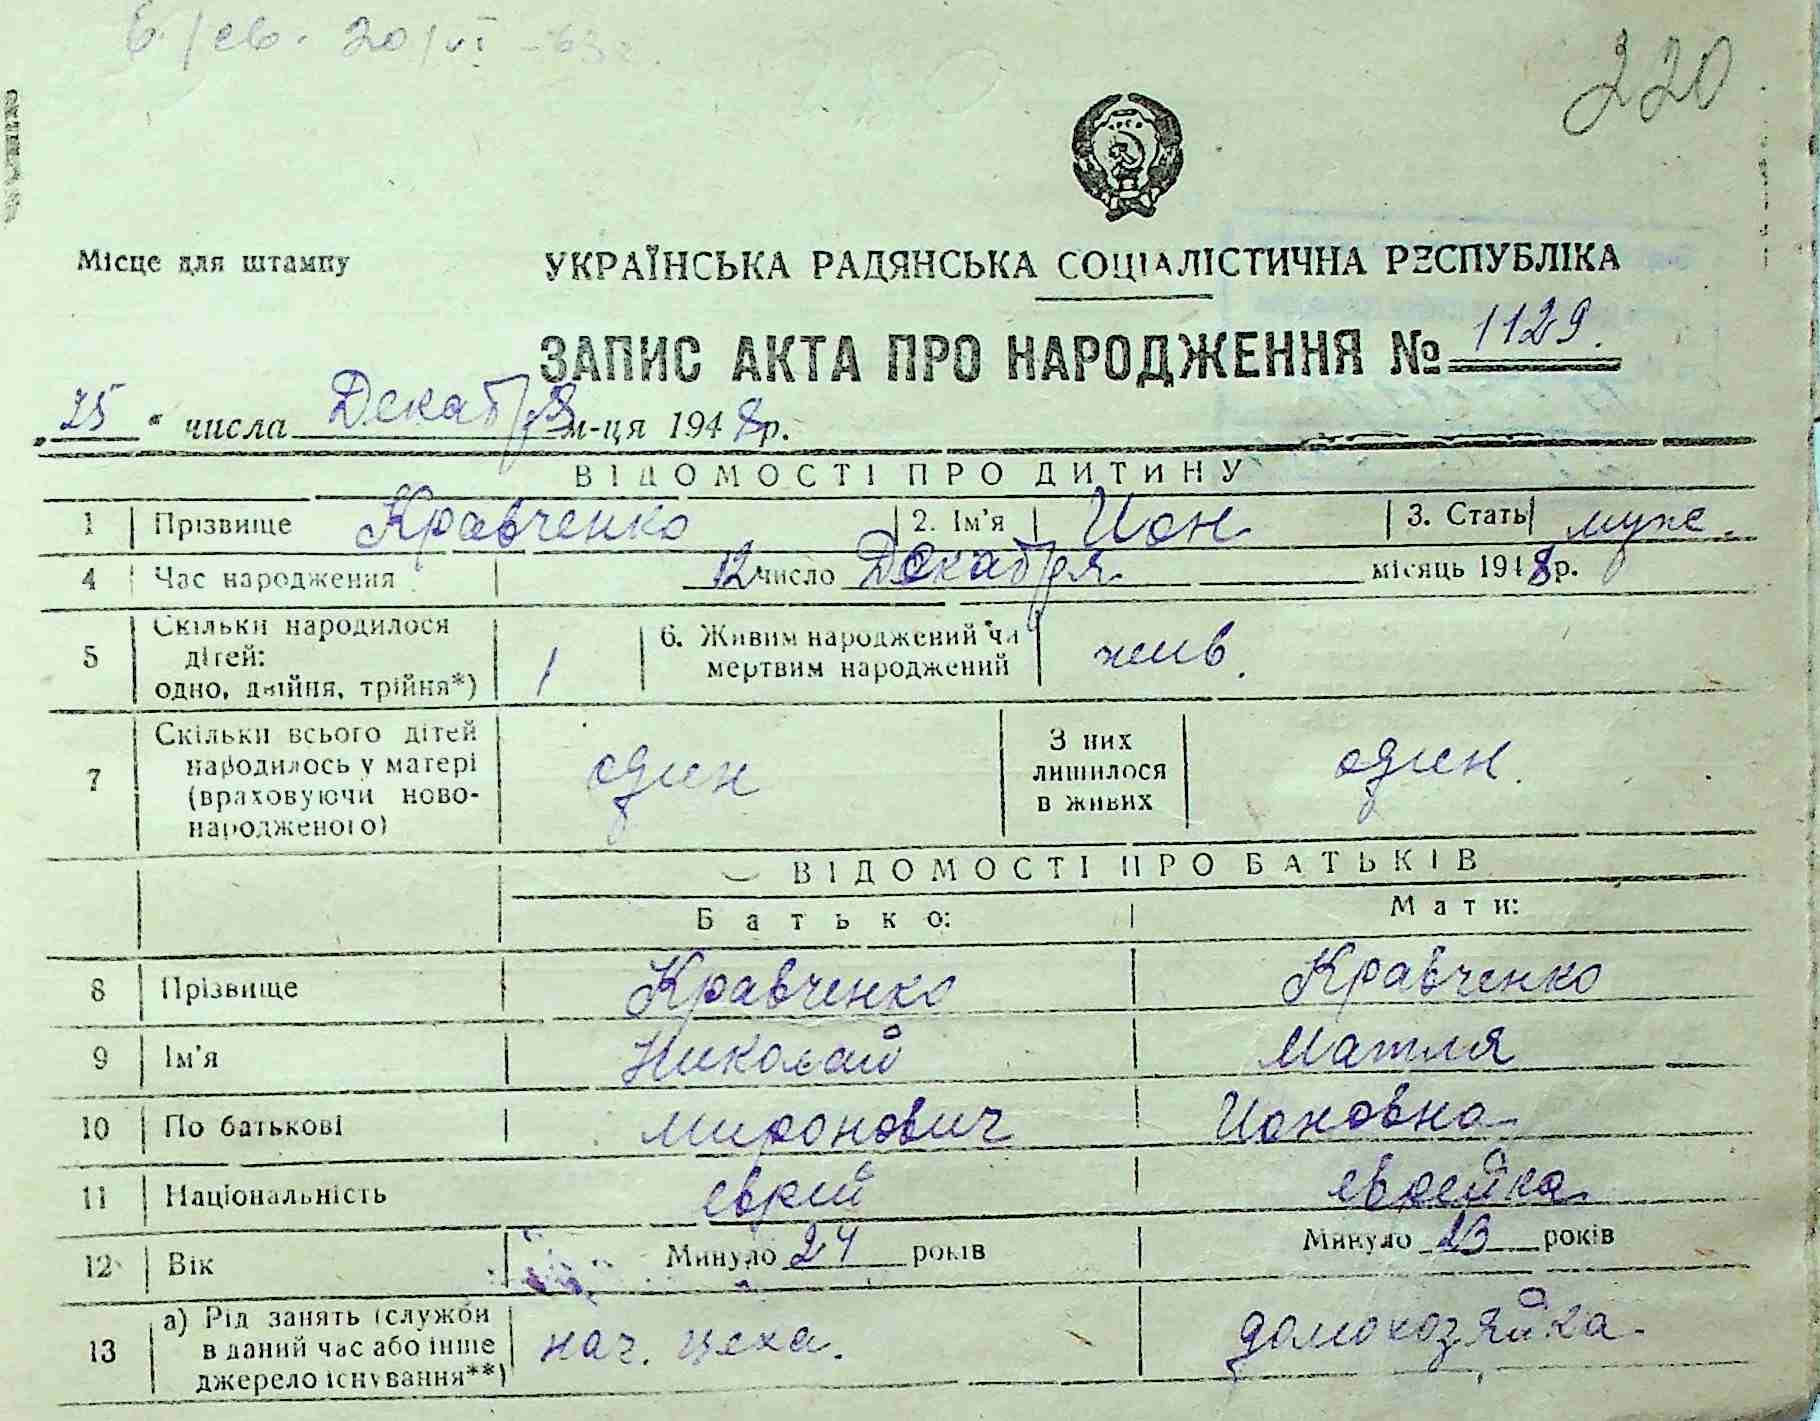 20/VI - 63г.
220
Місце для штампу
УКРАЇНСЬКА РАДЯНСЬКА СОЦІАЛІСТИЧНА РЕСПУБЛІКА
ЗАПИС АКТА ПРО НАРОДЖЕННЯ № 1129.
„25“ числа Декабря м-ця 1948 р.
ВІДОМОСТІ ПРО ДИТИНУ
1 Прізвище Кравченко 2. Ім'я Ион 3. Стать муж.
4 Час народження 12 число Декабря місяць 1948 р.
5 Скільки народилося
дітей:
одно, двійня, трійня*) 1 6. Живим народжений чи
мертвим народжений жив.
7 Скільки всього дітей
народилось у матері
(враховуючи ново-
народженого) один З них
лишилося
в живих один.
ВІДОМОСТІ ПРО БАТЬКІВ
Батько: Мати:
8 Прізвище Кравченко Кравченко
9 Ім'я Николай Матля
10 По батькові Миронович Ионовна
11 Національність еврей еврейка
12 Вік Минуло 24 років Минуло 23 років
13 а) Рід занять (служби
в даний час або інше
джерело існування**) нач. цеха. домохозяйка.